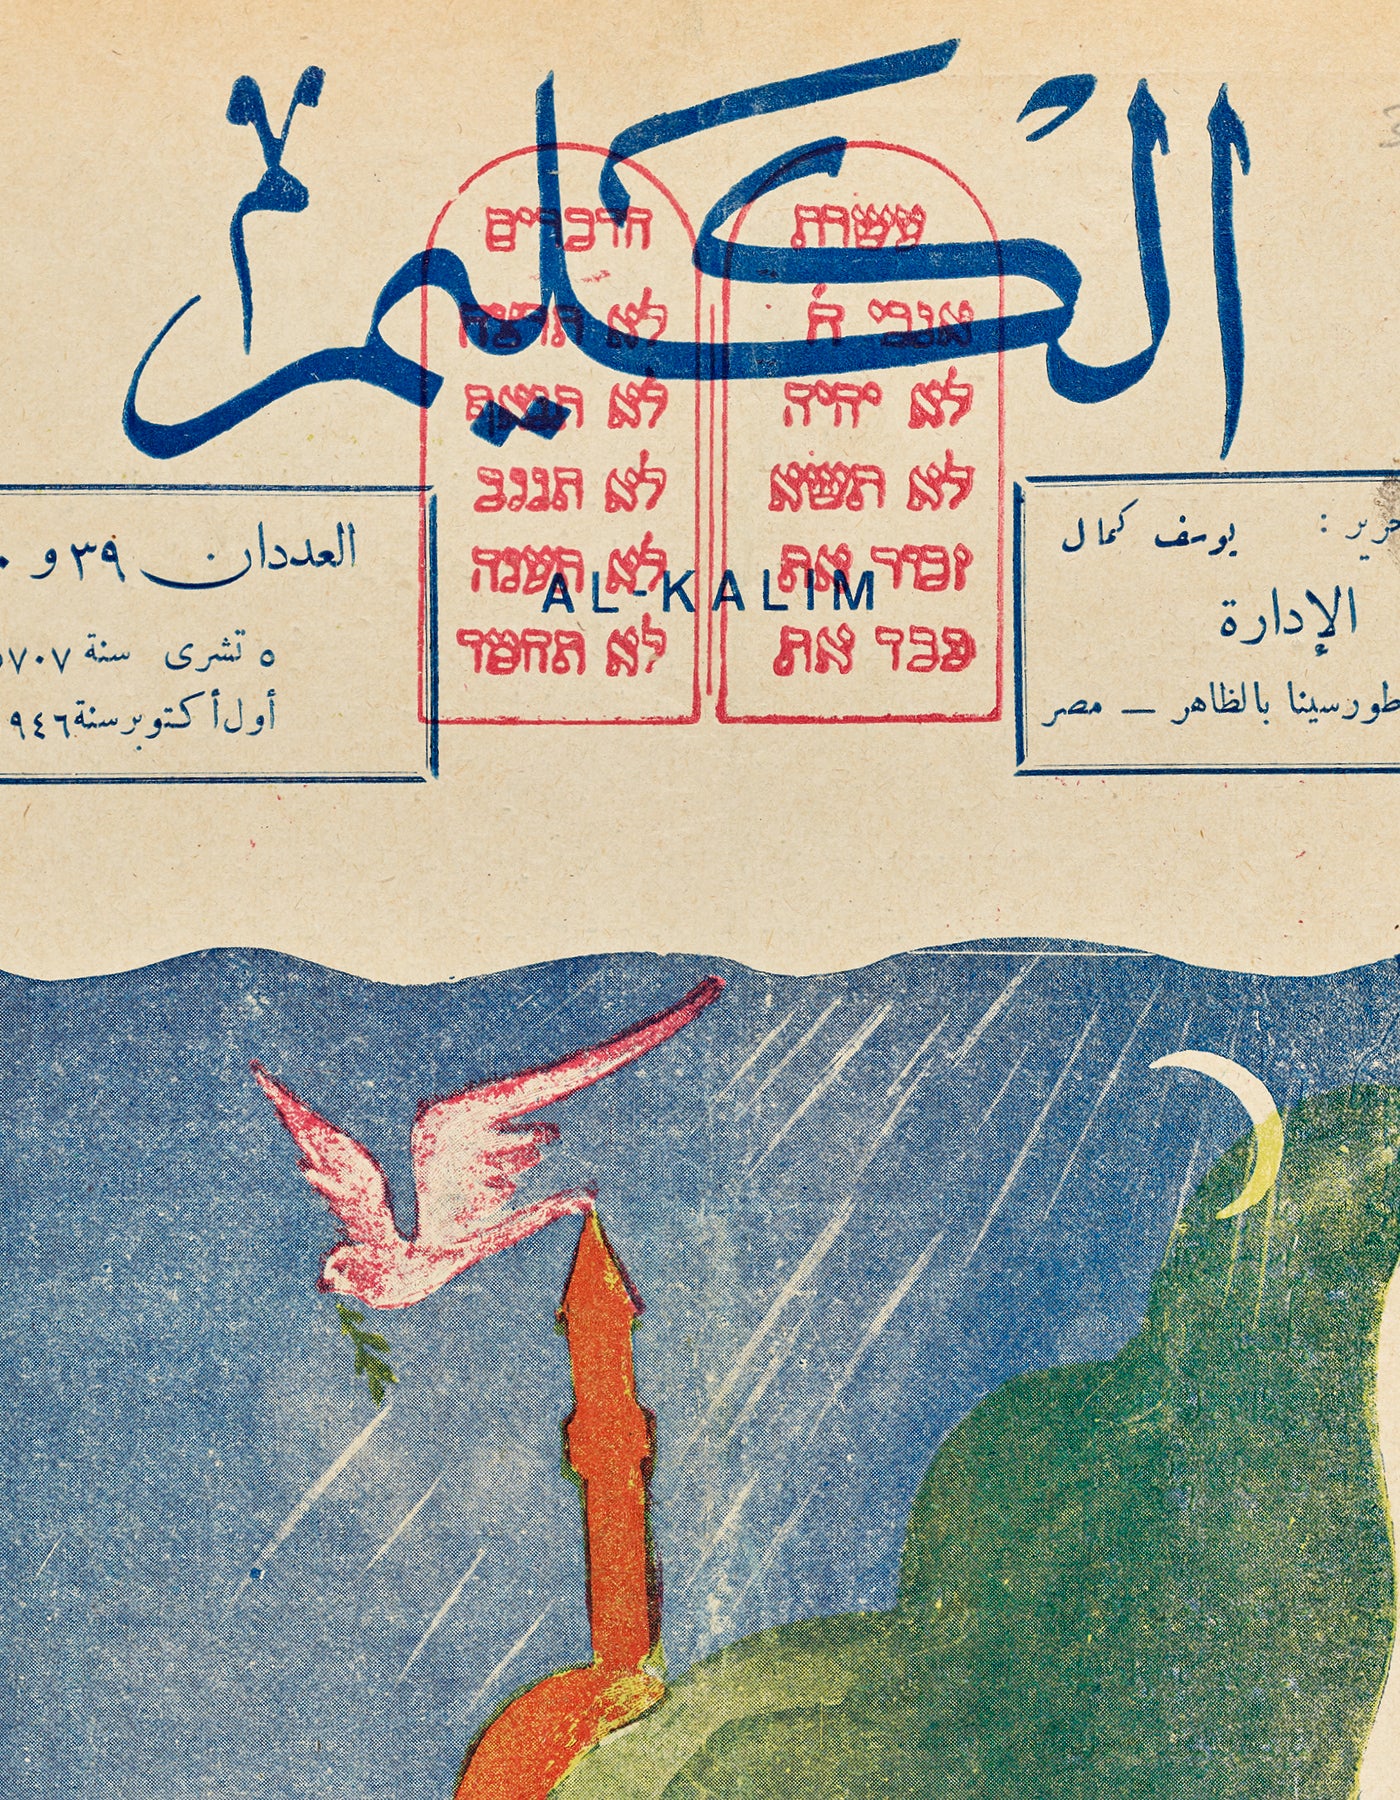 الكليم
עשרת
אנכי ה'
לא יהיה
לא תשא
זכור את
כבד את
הדברים
לא תרצח
לא תנאף
לא תגנב
לא תענה
לא תחמד
AL-KALIM
يوسف كمال
الإدارة
طورسينا بالظاهر — مصر
العددان ٣٩ و
٥ تشرى سنة ٥٧٠٧
أول أكتوبر سنة ١٩٤٦